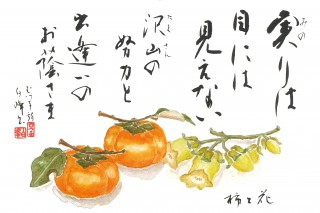 実りは
目には
見えない
沢山の
努力と
出逢いの
お蔭さま
柿と花